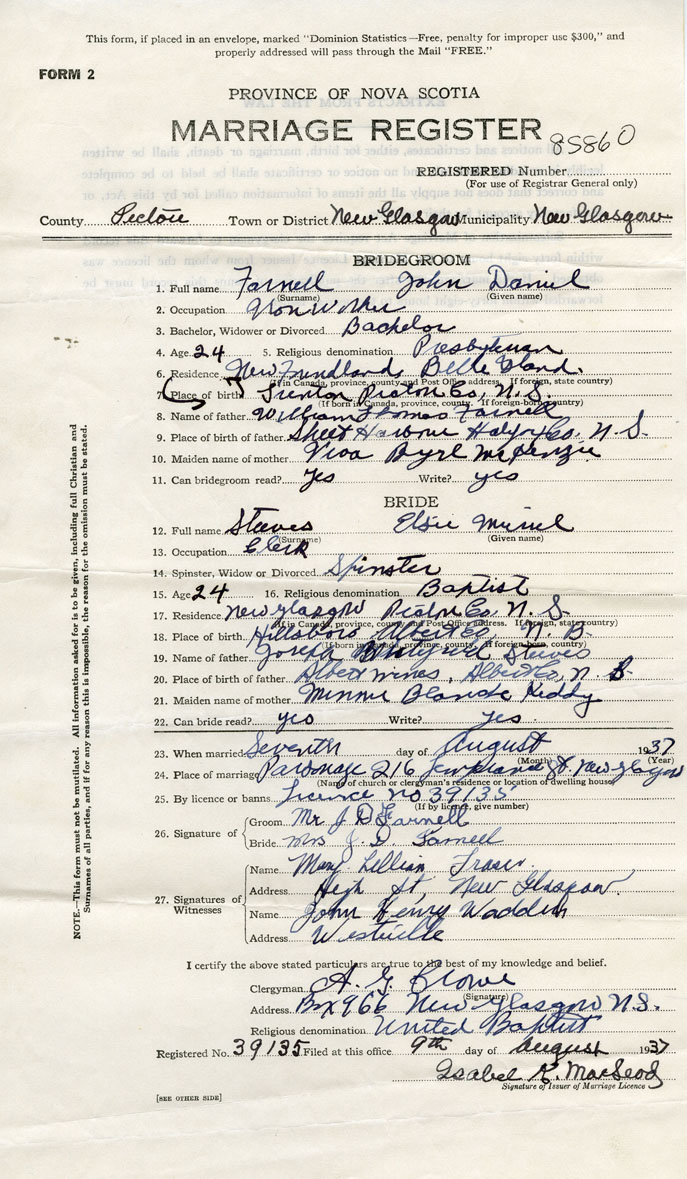 This form, if placed in an envelope, marked "Dominion Statistics—Free, penalty for improper use $300," and
properly addressed will pass through the Mail "FREE."
FORM 2
PROVINCE OF NOVA SCOTIA
MARRIAGE REGISTER 85860
REGISTERED Number
(For use of Registrar General only)
County Pictou Town or District New Glasgow Municipality New Glasgow
BRIDEGROOM
1. Full name Farnell John Daniel
(Surname) (Given name)
2. Occupation Iron Worker
3. Bachelor, Widower or Divorced Bachelor
4. Age 24 5. Religious denomination Presbyterian
6. Residence Newfundland Belle Island
(If in Canada, province, county and Post Office address. If foreign, state country)
7. Place of birth Trenton Pictou Co, N. S.
(If born in Canada, province, county. If foreign-born, country)
8. Name of father William Thomas Farnell
9. Place of birth of father Sheet Harbour Halifax Co. N. S.
10. Maiden name of mother Byrl McKenzie
11. Can bridegroom read? Yes Write? yes
BRIDE
12. Full name Steeves Elsie Muriel
(Surname) (Given name)
13. Occupation Clerk
14. Spinster, Widow or Divorced Spinster
15. Age 24 16. Religious denomination Baptist
17. Residence New Glasgow Pictou Co, N. S.
(If in Canada, province, county and Post Office address. If foreign, state country)
18. Place of birth Hillsboro Albert Co, N. B.
(If born in Canada, province, county. If foreign born, country)
19. Name of father Joseph Steeves
20. Place of birth of father Albert mines, Albert Co, N. B.
21. Maiden name of mother Minnie Blanche Keddy
22. Can bride read? yes Write? yes.
23. When married Seventh day of August 1937
(Month) (Year)
24. Place of marriage Parsonage 216 St. New Glasgow
(Name of church or clergyman's residence or location of dwelling house)
25. By licence or banns Licence no 39135
(If by licence, give number)
26. Signature of
Groom Mr J D Farnell
Bride Mrs J. D. Farnell
27. Signatures of Witnesses
Name Mary Lillian Fraser
Address High St, New Glasgow.
Name John Henry Waddin
Address Westville
I certify the above stated particulars are true to the best of my knowledge and belief.
Clergyman A. G. Crowe
(Signature)
Address Box 966 New Glasgow N.S.
Religious denomination United Baptist
Registered No. 39135 Filed at this office 9th day of August 1937
Isabel K. MacLeod
Signature of Issuer of Marriage Licence
[SEE OTHER SIDE]
NOTE.—This form must not be mutilated. All information asked for is to be given, including full Christian and
Surnames of all parties, and if for any reason this is impossible, the reason for the omission must be stated.